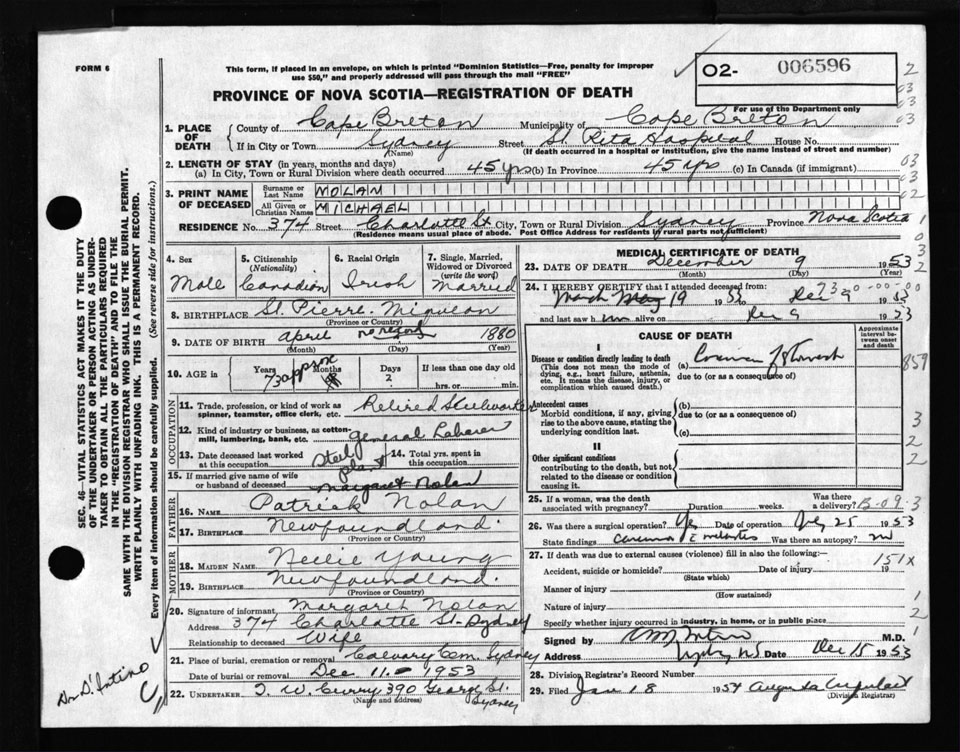 FORM 6
This form, if placed in an envelope, on which is printed "Dominion Statistics—Free, penalty for improper
use $50," and properly addressed will pass through the mail "FREE"
O2- 006596
PROVINCE OF NOVA SCOTIA—REGISTRATION OF DEATH
For use of the Department only
1. PLACE OF DEATH
County of Cape Breton Municipality of Cape Breton
If in City or Town Sydney Street St Rita Hospital House No.
(Name) (If death occurred in a hospital or institution, give the name instead of street and number)
2. LENGTH OF STAY (in years, months and days)
(a) In City, Town or Rural Division where death occurred 45 yrs (b) In Province 45 yrs (c) In Canada (if immigrant)
3. PRINT NAME OF DECEASED
Surname or Last Name NOLAN
All Given or Christian Names MICHAEL
RESIDENCE No. 374 Street Charlotte St City, Town or Rural Division Sydney Province Nova Scotia
(Residence means usual place of abode. Post Office Address for residents in rural parts not sufficient)
4. Sex
Male
5. Citizenship
(Nationality)
Canadian
6. Racial Origin
Irish
7. Single, Married,
Widowed or Divorced
(write the word)
Married
8. BIRTHPLACE St. Pierre. Miquelon
(Province or Country)
9. DATE OF BIRTH April no record 1880
(Month) (Day) (Year)
10. AGE in Years Months Days If less than one day old
73 approx 2 hrs. or min.
OCCUPATION
11. Trade, profession, or kind of work as spinner, teamster, office clerk, etc. Retired Steelworker
12. Kind of industry or business, as cotton-mill, lumbering, bank, etc. General Laborer
13. Date deceased last worked at this occupation Steel plant
14. Total yrs. spent in this occupation
15. If married give name of wife or husband of deceased Margaret Nolan
FATHER
16. NAME Patrick Nolan
17. BIRTHPLACE Newfoundland.
(Province or Country)
MOTHER
18. MAIDEN NAME Nellie Young
19. BIRTHPLACE Newfoundland.
(Province or Country)
20. Signature of informant Margaret Nolan
Address 374 Charlotte St. Sydney
Relationship to deceased Wife
21. Place of burial, cremation or removal Calvary Cem. Sydney
Date of burial or removal Dec 11 1953
22. UNDERTAKER T. W. Curry 390 George St.
(Name and address) Sydney
MEDICAL CERTIFICATE OF DEATH
23. DATE OF DEATH December 9 1953
(Month) (Day) (Year)
24. I HEREBY CERTIFY that I attended deceased from:
March May 19 1953 to Dec 9 1953
and last saw him alive on Dec 9 1953
CAUSE OF DEATH
Approximate interval between onset and death
I
Disease or condition directly leading to death
(This does not mean the mode of dying, e.g., heart failure, asthenia, etc. It means the disease, injury, or complication which caused death.)
(a) Carcinoma of Stomach
due to (or as a consequence of)
Antecedent causes
Morbid conditions, if any, giving rise to the above cause, stating the underlying condition last.
(b)
due to (or as consequence of)
(c)
II
Other significant conditions
contributing to the death, but not related to the disease or condition causing it.
25. If a woman, was the death associated with pregnancy? Duration weeks. Was there a delivery?
26. Was there a surgical operation? Yes Date of operation 25 1953
State findings Was there an autopsy? no
27. If death was due to external causes (violence) fill in also the following:—
Accident, suicide or homicide? Date of injury 19
(State which)
151X
Manner of injury
(How sustained)
Nature of injury
Specify whether injury occurred in industry, in home, or public place
Signed by M.D.
Address Date Dec 15 1953
28. Division Registrar's Record Number
29. Filed Jan 18 1954
(Division Registrar)
SEC. 46—VITAL STATISTICS ACT MAKES IT THE DUTY
OF THE UNDERTAKER OR PERSON ACTING AS UNDER-
TAKER TO OBTAIN ALL THE PARTICULARS REQUIRED
IN THE "REGISTRATION OF DEATH", AND TO FILE THE
SAME WITH THE DIVISION REGISTRAR WHO SHALL ISSUE THE BURIAL PERMIT.
WRITE PLAINLY WITH UNFADING INK. THIS IS A PERMANENT RECORD.
Every item of information should be carefully supplied. (See reverse side for instructions.)
Dr. D'Intino